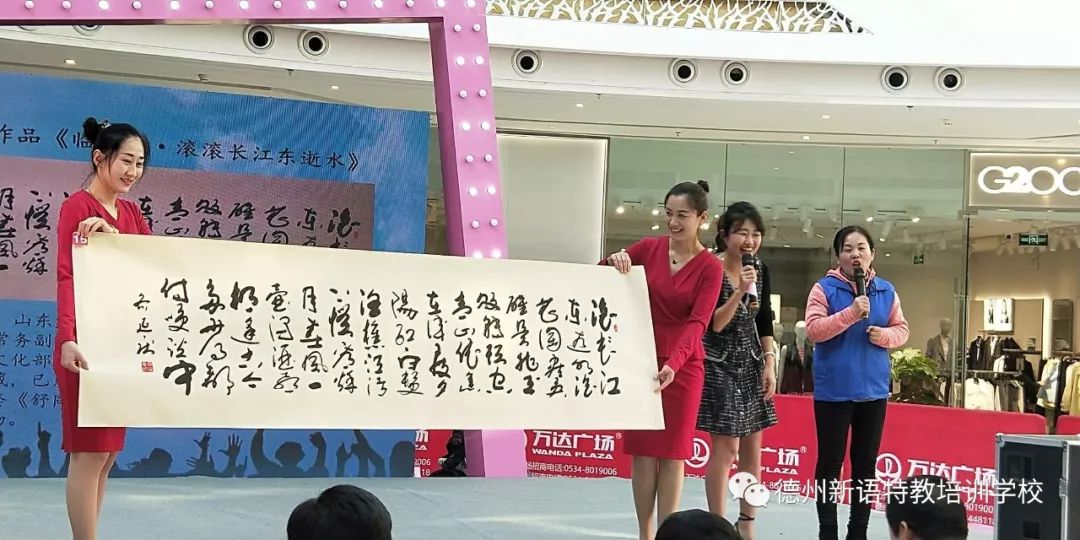 作品《临
·滚滚长江东逝水》
滚滚长江
东逝水浪
花淘尽英
雄是非成
败转头空
青山依旧
在几度夕
阳红白发
渔樵江渚
上惯看秋
月春风一
壶浊酒喜
相逢古今
多少事都
付笑谈中
15
山东
常务副
文化部
《舒同
G200
万达广场®
WANDA PLAZA
招商电话:0534-8019006
万达广场®
WANDA PLAZA
万达广场®
WANDA PLAZA
德州新语特教培训学校